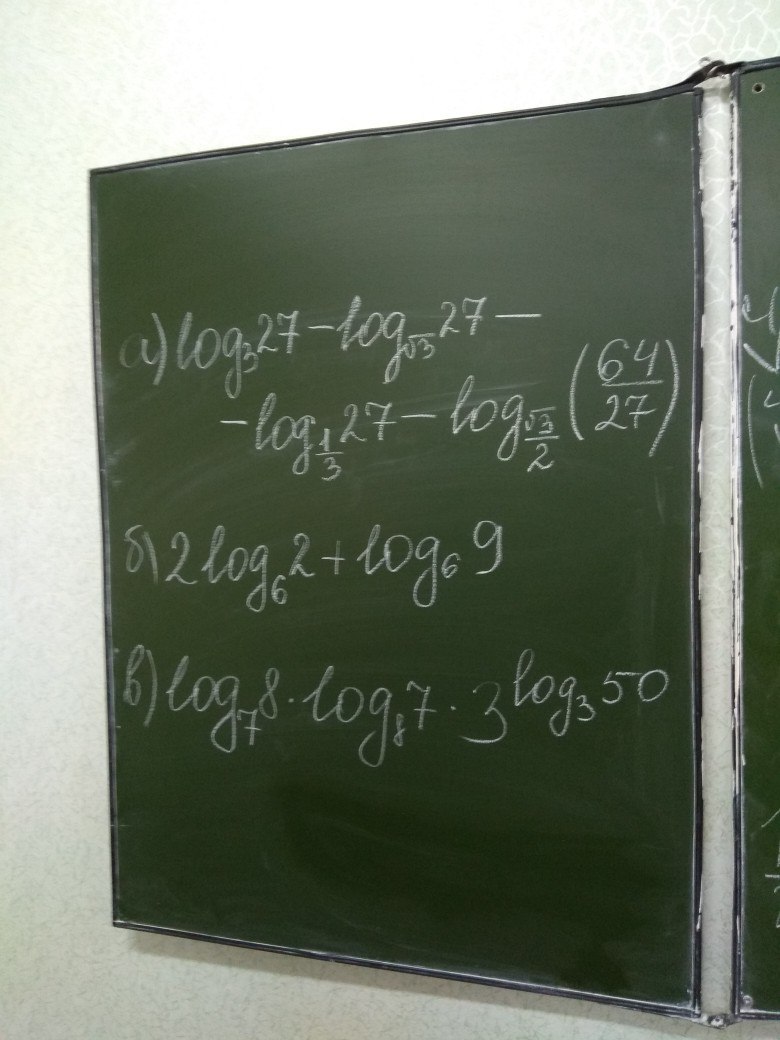 а) log₃27 − log_√3 27 −
− log_(1/3) 27 − log_(√3/2) (64/27)
б) 2 log₆2 + log₆9
в) log₇8 · log₈7 · 3^(log₃50)